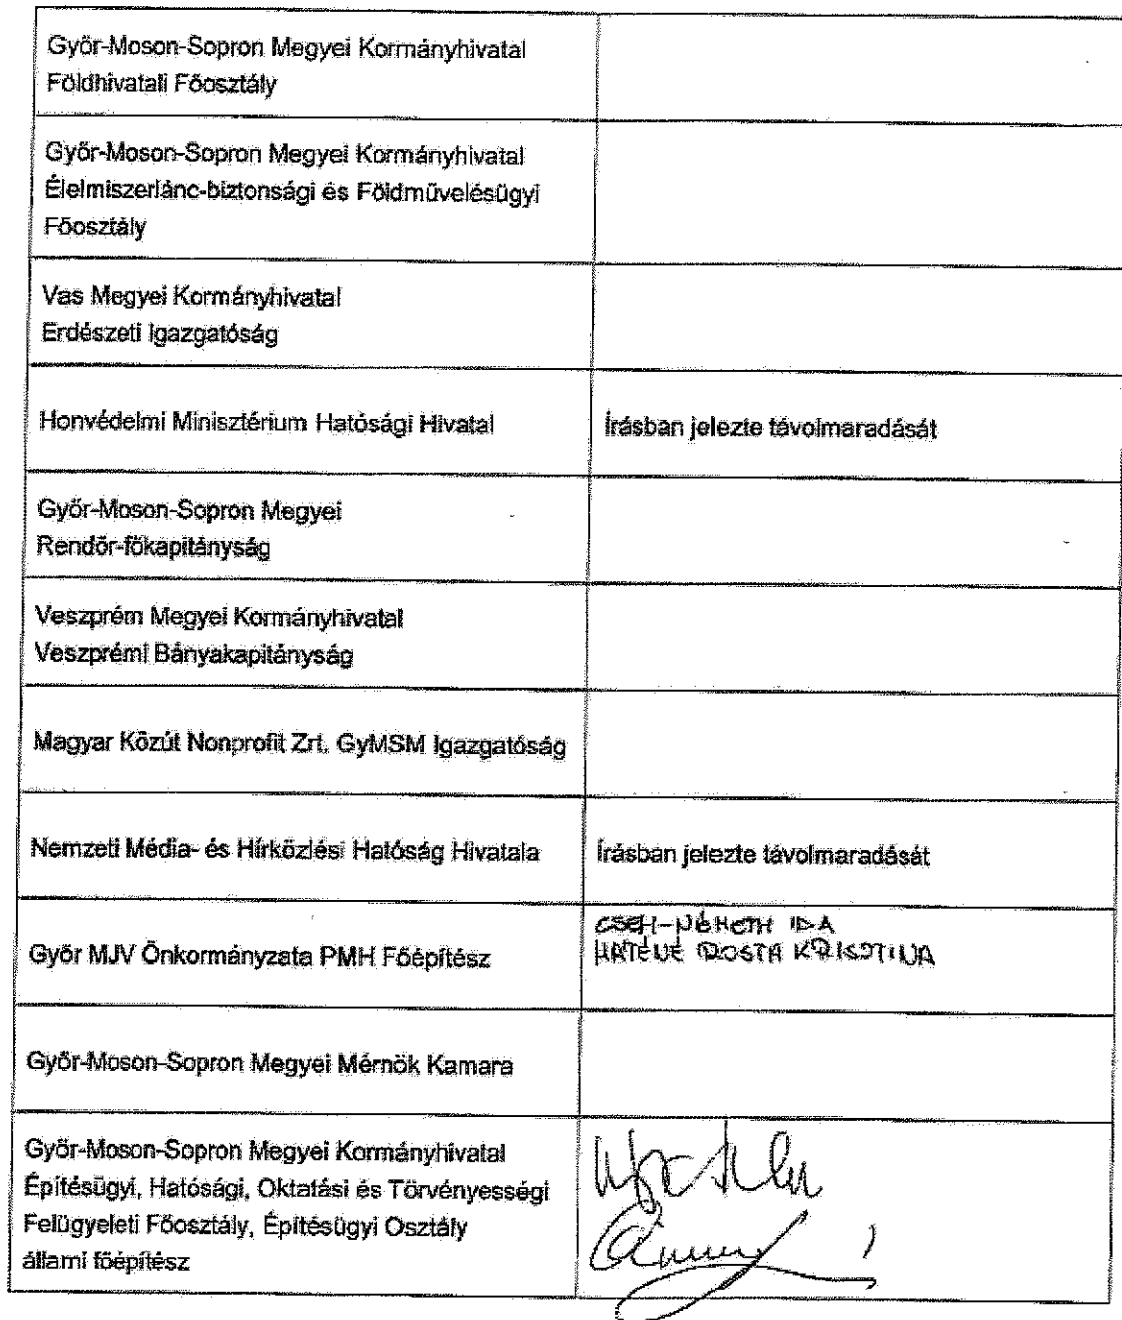 Győr-Moson-Sopron Megyei Kormányhivatal
Földhivatali Főosztály
Győr-Moson-Sopron Megyei Kormányhivatal
Élelmiszerlánc-biztonsági és Földművelésügyi
Főosztály
Vas Megyei Kormányhivatal
Erdészeti Igazgatóság
Honvédelmi Minisztérium Hatósági Hivatal
Írásban jelezte távolmaradását
Győr-Moson-Sopron Megyei
Rendőr-főkapitányság
Veszprém Megyei Kormányhivatal
Veszprémi Bányakapitányság
Magyar Közút Nonprofit Zrt. GyMSM Igazgatóság
Nemzeti Média- és Hírközlési Hatóság Hivatala
Írásban jelezte távolmaradását
Győr MJV Önkormányzata PMH Főépítész
CSEH-NÉMETH IDA
MÁTÉNÉ ROSTA KRISZTINA
Győr-Moson-Sopron Megyei Mérnök Kamara
Győr-Moson-Sopron Megyei Kormányhivatal
Építésügyi, Hatósági, Oktatási és Törvényességi
Felügyeleti Főosztály, Építésügyi Osztály
állami főépítész